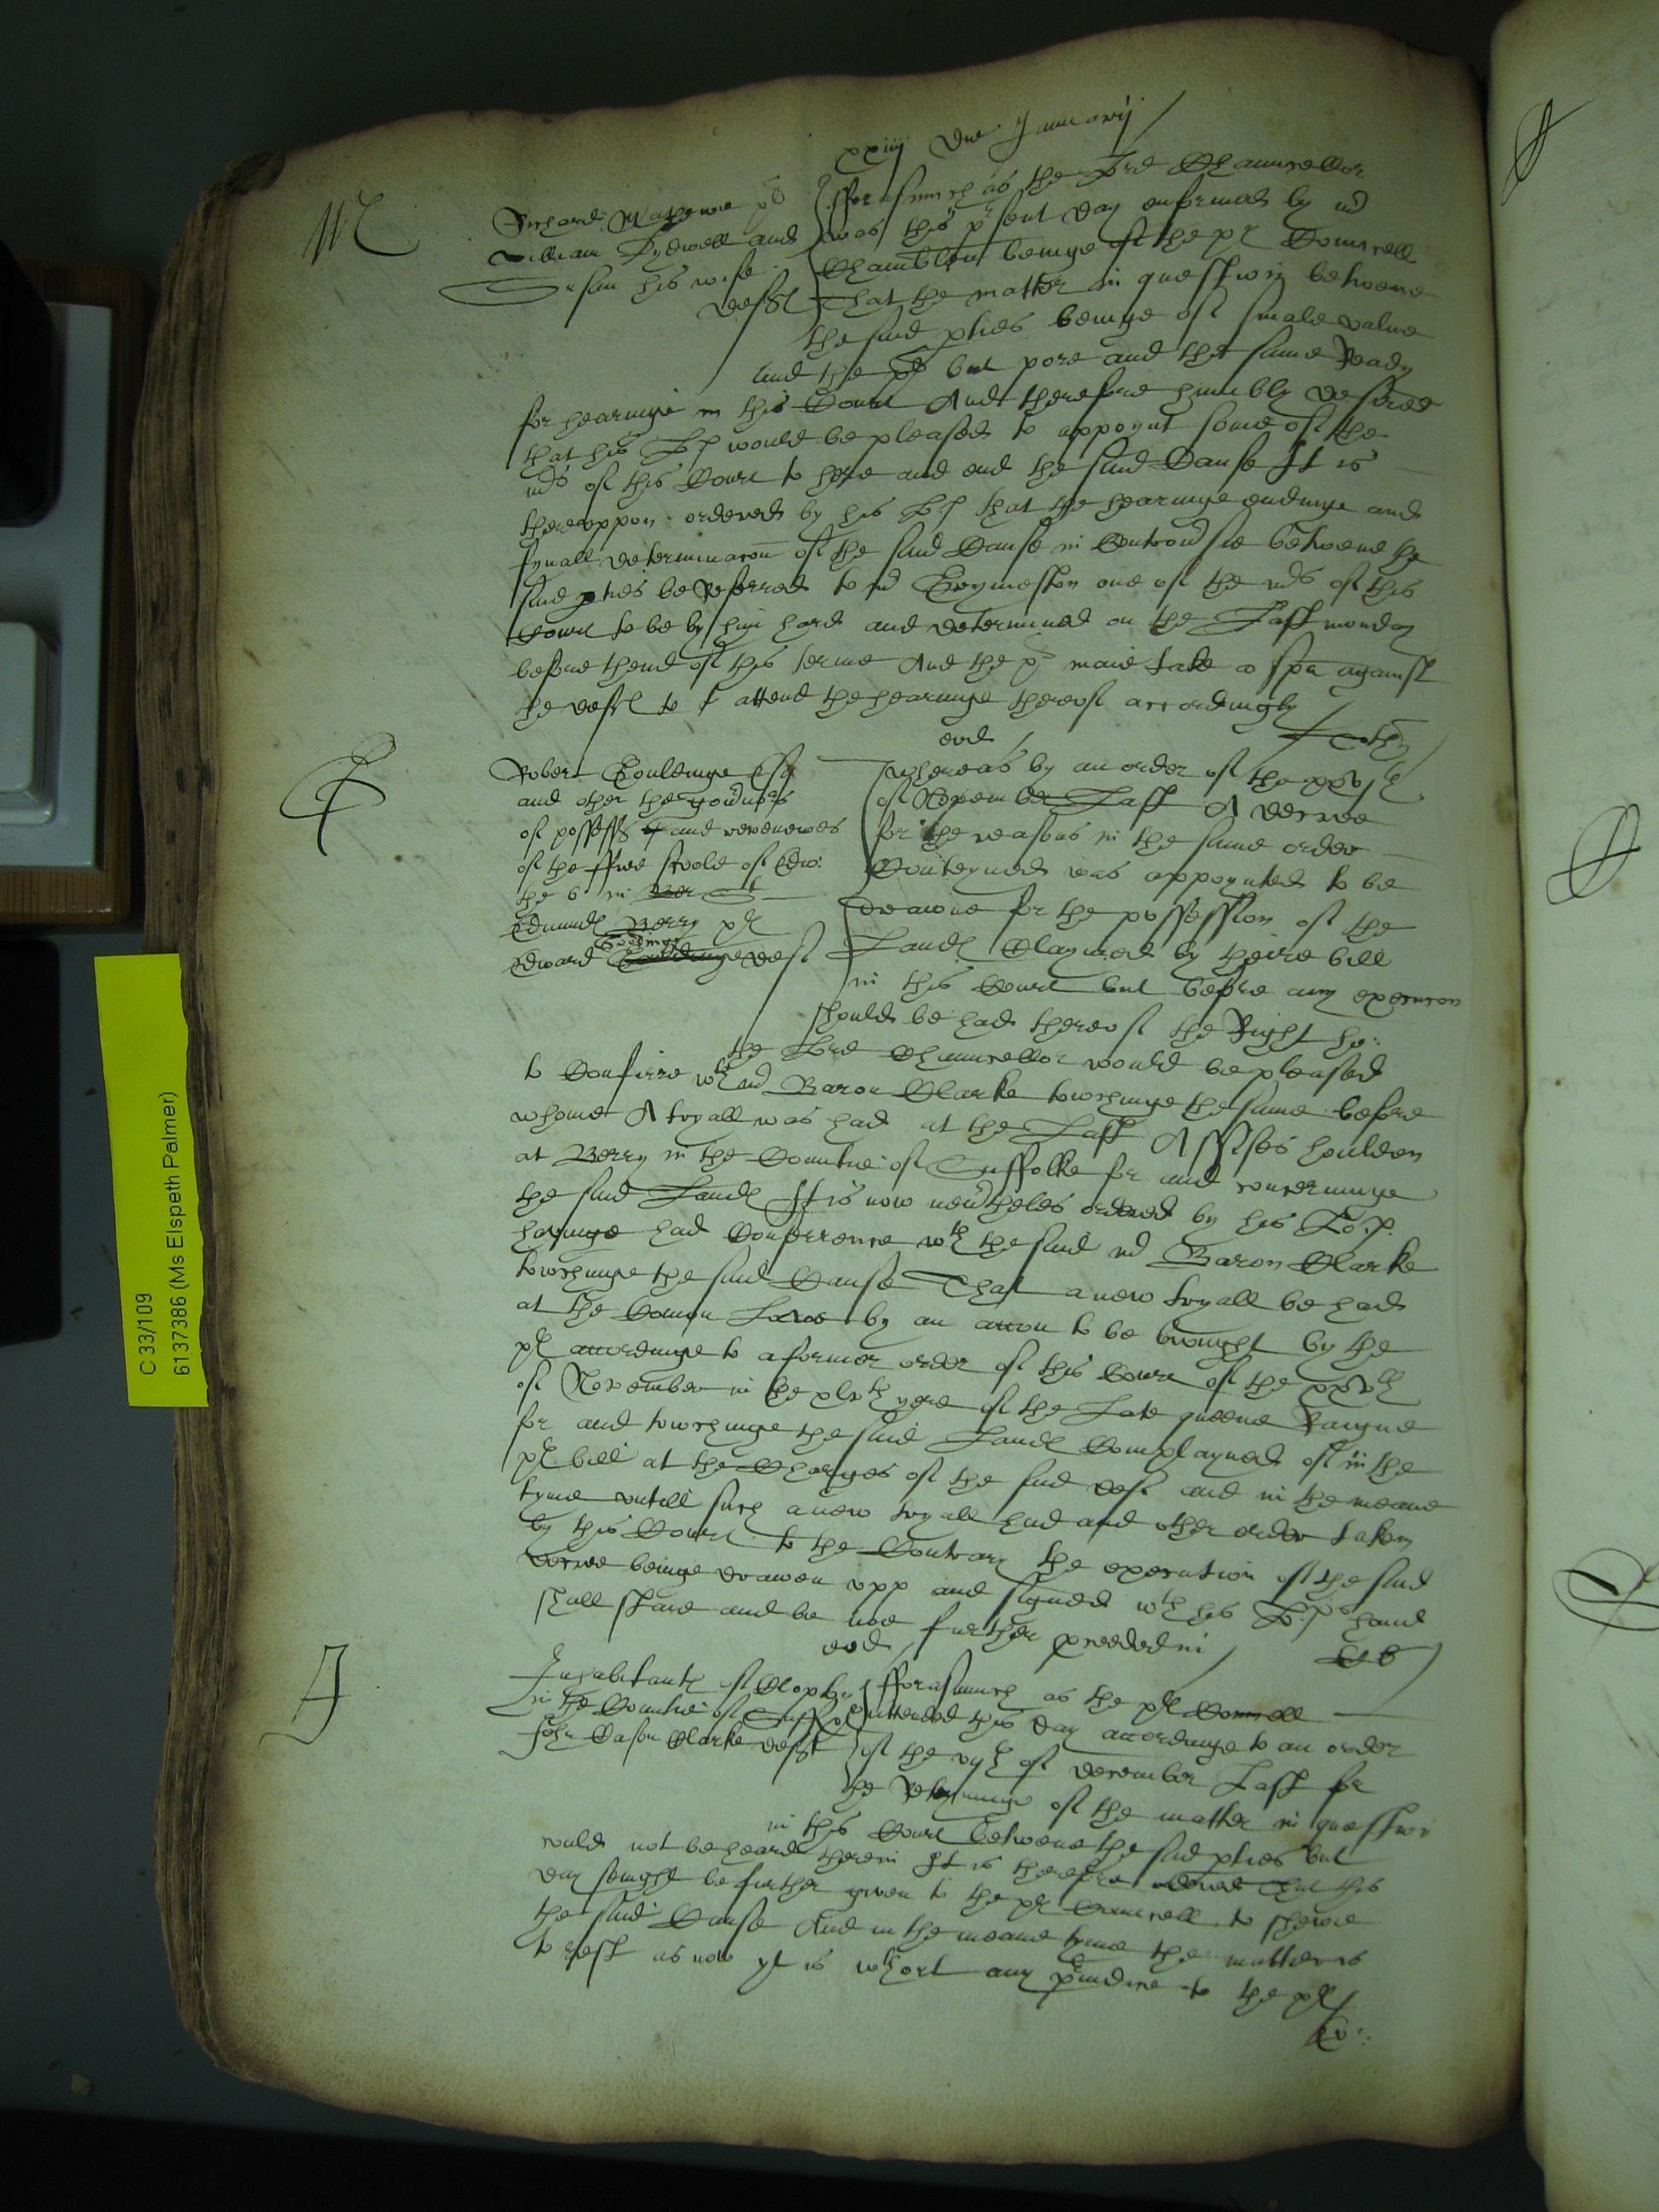 xxiiij die Januarij
M
Richard Mathewe pl
William Tydwell and
Susan his wife
defts
fforasmuch as the Lord Chauncellor
was this pnt sent day enformed by mr
Chamblen beinge of the pl Councell
That the matter in question betweene
the said pties beinge of smale value
and the pl but pore and the same Ready
for hearinge in this Court And therefore humbly desired
that his Lp would be pleased to appoynt some of the
mrs of this Court to here and end the said Cause It is
thereuppon ordered by his Lp that the hearinge endinge and
fynall determinacon of the said Cause in Controvsie betweene the
said pties be Referred to mr Grymeston one of the mrs of this
Court to be by him hard and determined on the Last monday
before thend of this terme And the pl maie take a spa against
the defts to attend the hearinge thereof accordingly
eod
G
Robert Gouldinge Esq
and other the govnors
of possess and revenewes
of the ffree scole of Edw:
the 6 in Ber St
Edmund Berry pl
Edward Gouldinge deft
Whereas by an order of the xxvth
of November Last A decree
for the reasons in the same order
Conteyned was appoynted to be
drawne for the possession of the
Lands Claymed by theire bill
in this Court but before any execucon
should be had thereof the Right ho:
the Lord Chauncellor would be pleased
to Conferre wth mr Baron Clarke towchinge the same before
whome A tryall was had at the Last Assises houlden
at Berry in the Countie of Suffolke for and concerninge
the said Lands It is now nevtheles ordered by his Lo:p.
havinge had Conference wth the said mr Baron Clarke
towchinge the said Cause That a new tryall be had
at the Comon Lawe by an accon to be brought by the
pl accordinge to a former order of this Court of the xxvth
of November in the xlvth yere of the Late queene Raigne
for and towchinge the said Lands Complayned of in the
pl bill at the Charges of the said deft and in the meane
tyme untill such a new tryall had and other order taken
by this Court to the Contrary the execution of the said
decree beinge drawen upp and signed wth his L:ps hand
shall staie and be noe further pceeded in
eod
J
Inhabitants of Clopton
in the Countie of Suff pl
John Cason Clarke deft
fforasmuch as the pl Councell
attended this day accordinge to an order
of the vijth of December Last for
the Reteyninge of the matter in question
in this Court betweene the said pties but
could not be heard therein It is therefore ordered That this
day senight be further given to the pl Councell to shewe
the said Cause And in the meane tyme the matter is
to rest as now yt is wthout any piudice to the pl